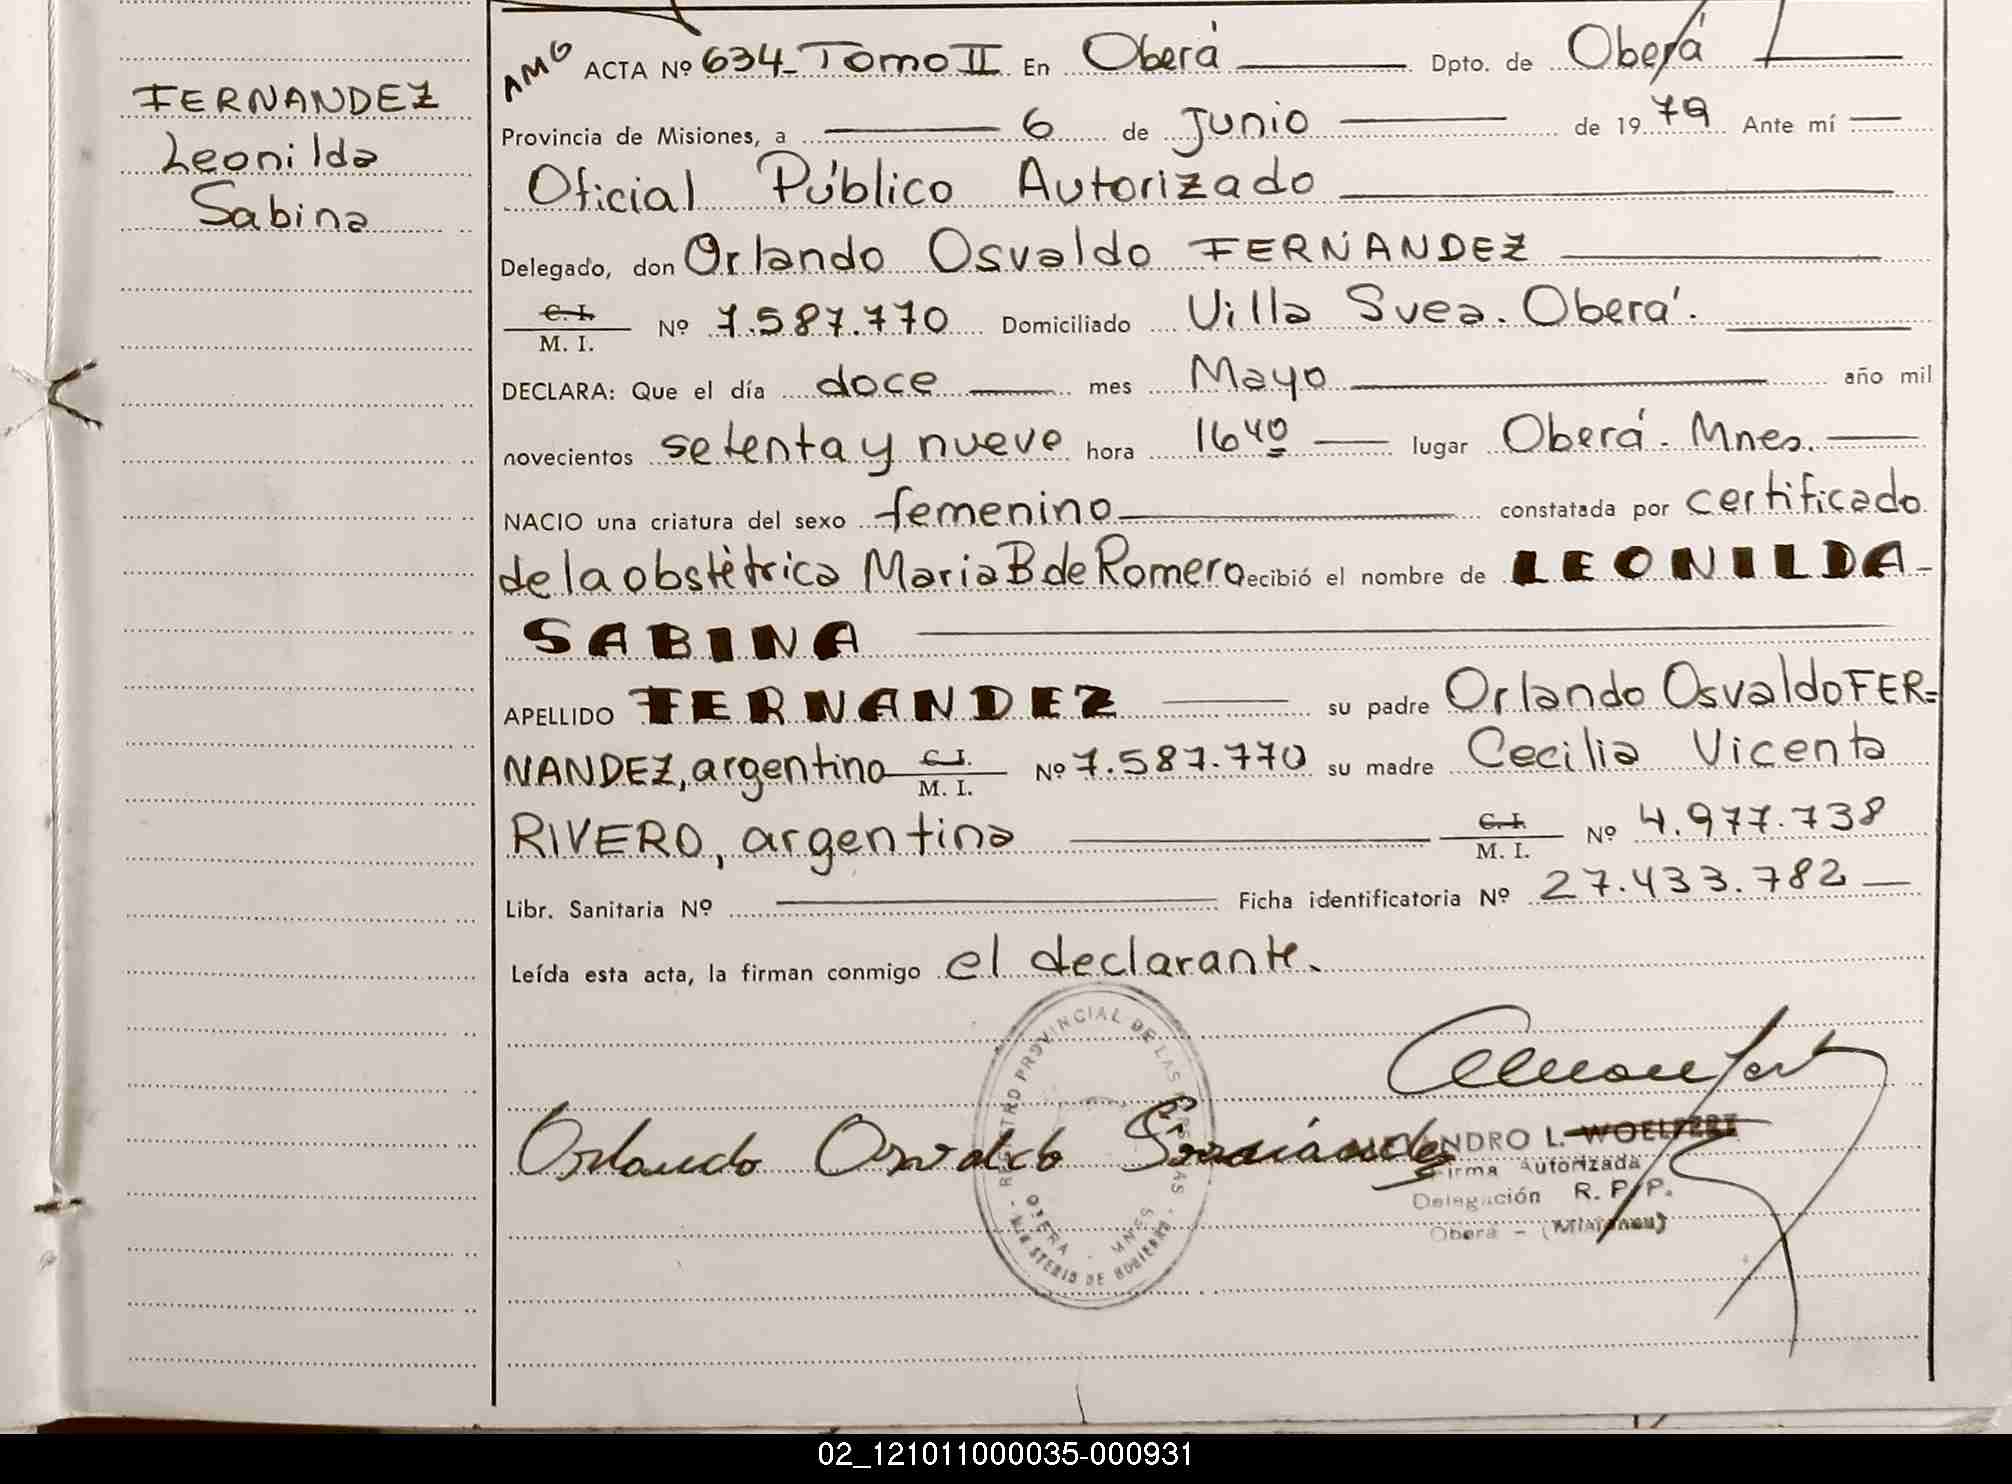 FERNANDEZ
Leonilda
Sabina
AMG ACTA Nº 634-Tomo II En Oberá Dpto. de Oberá
Provincia de Misiones, a 6 de Junio de 1979 Ante mí
Oficial Público Autorizado
Delegado, don Orlando Osvaldo FERNANDEZ
C. I. M. I. Nº 7.587.770 Domiciliado Villa Svea. Oberá.
DECLARA: Que el día doce mes Mayo año mil
novecientos setenta y nueve hora 16 40 lugar Oberá. Mnes.
NACIO una criatura del sexo femenino constatada por certificado
de la obstètrica Maria B de Romero ecibió el nombre de LEONILDA
SABINA
APELLIDO FERNANDEZ su padre Orlando Osvaldo FER=
NANDEZ, argentino C. I. M. I. Nº 7.587.770 su madre Cecilia Vicenta
RIVERO, argentina C. I. M. I. Nº 4.977.738
Libr. Sanitaria Nº Ficha identificatoria Nº 27.433.782
Leída esta acta, la firman conmigo el declarante.
REGISTRO PROVINCIAL DE LAS PERSONAS
OBERA - MNES
MINISTERIO DE GOBIERNO
Orlando Osvaldo Fernández
NDRO L. WOELFERT
Firma Autorizada
Delegación R. P. P.
Oberá - (Misiones)
02_121011000035-000931